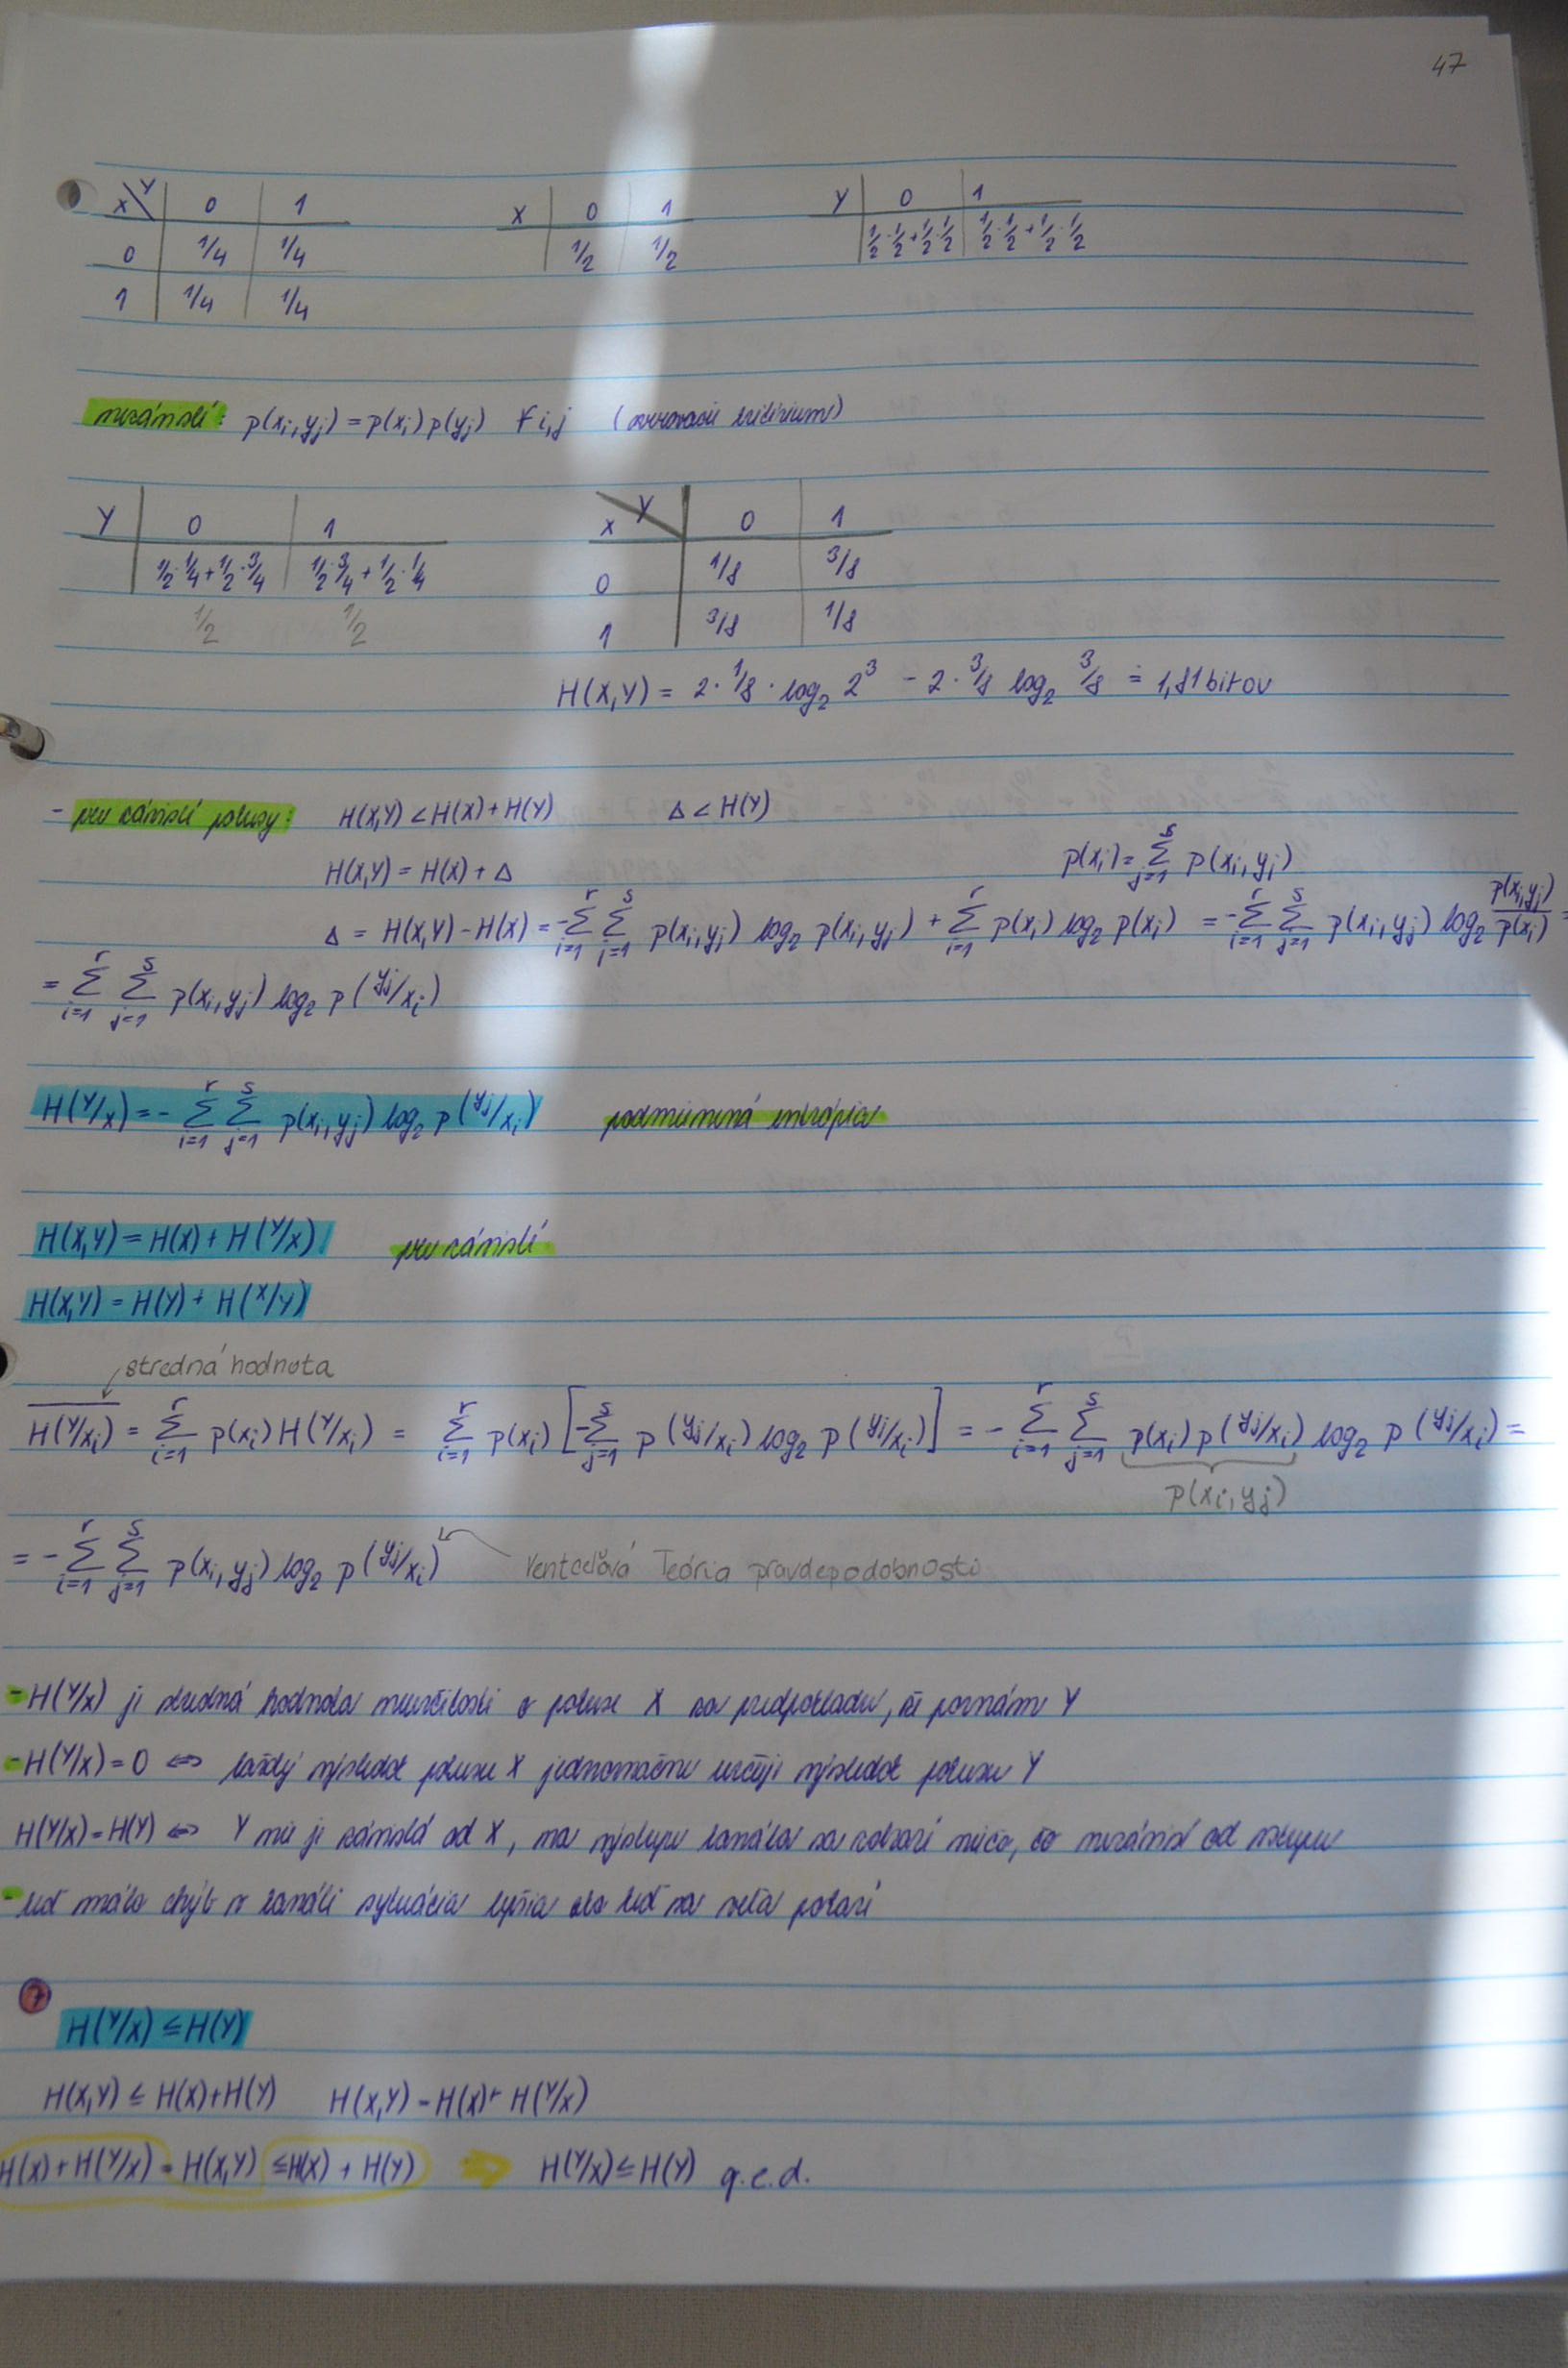 47
X\Y 0 1
0 1/4 1/4
1 1/4 1/4
X 0 1
1/2 1/2
Y 0 1
1/2·1/2+1/2·1/2 1/2·1/2+1/2·1/2
nezávislé: p(xi,yj)=p(xi)p(yj) ∀i,j (overovacie kritérium)
Y 0 1
1/2·1/4+1/2·3/4 1/2·3/4+1/2·1/4
1/2 1/2
X\Y 0 1
0 1/8 3/8
1 3/8 1/8
H(X,Y) = 2·1/8·log₂ 2³ - 2·3/8 log₂ 3/8 ≐ 1,81 bitov
- pre závislé pokusy: H(X,Y) < H(X)+H(Y) Δ < H(Y)
H(X,Y) = H(X) + Δ p(xi) = Σ_{j=1}^{s} p(xi,yj)
Δ = H(X,Y) - H(X) = -Σ_{i=1}^{r} Σ_{j=1}^{s} p(xi,yj) log₂ p(xi,yj) + Σ_{i=1}^{r} p(xi) log₂ p(xi) = -Σ_{i=1}^{r} Σ_{j=1}^{s} p(xi,yj) log₂ p(xi,yj)/p(xi) =
= Σ_{i=1}^{r} Σ_{j=1}^{s} p(xi,yj) log₂ p(yj/xi)
H(Y/X) = - Σ_{i=1}^{r} Σ_{j=1}^{s} p(xi,yj) log₂ p(yj/xi) podmienená entrópia
H(X,Y) = H(X) + H(Y/X) pre závislé
H(X,Y) = H(Y) + H(X/Y)
stredná hodnota
H(Y/xi) = Σ_{i=1}^{r} p(xi) H(Y/xi) = Σ_{i=1}^{r} p(xi) [-Σ_{j=1}^{s} p(yj/xi) log₂ p(yj/xi)] = - Σ_{i=1}^{r} Σ_{j=1}^{s} p(xi) p(yj/xi) log₂ p(yj/xi) =
p(xi,yj)
= - Σ_{i=1}^{r} Σ_{j=1}^{s} p(xi,yj) log₂ p(yj/xi) Ventceľová Teória pravdepodobnosti
- H(Y/X) je stredná hodnota neurčitosti o pokuse X za predpokladu, že poznám Y
- H(Y/X) = 0 ⇔ každý výsledok pokusu X jednoznačne určuje výsledok pokusu Y
H(Y/X) = H(Y) ⇔ Y nie je závislá od X, na výstupe kanála sa zobrazí niečo, čo nezávisí od vstupu
- keď málo chýb v kanáli situácia lepšia ako keď sa veľa pokazí
7
H(Y/X) ≤ H(Y)
H(X,Y) ≤ H(X)+H(Y) H(X,Y) = H(X) + H(Y/X)
H(X)+H(Y/X) = H(X,Y) ≤ H(X) + H(Y) ⇒ H(Y/X) ≤ H(Y) q.e.d.